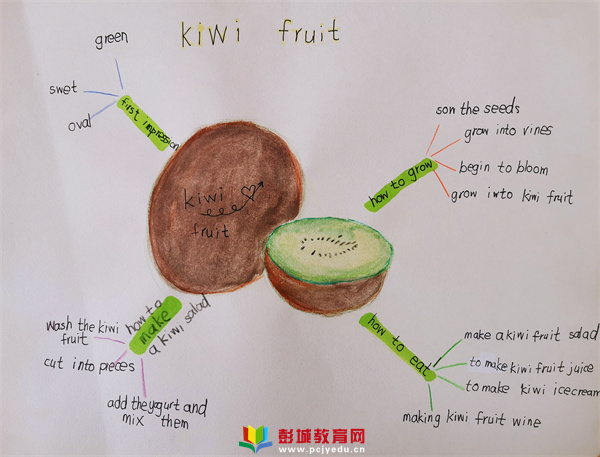 kiwi fruit
green
swet
oval
first impression
kiwi
fruit
son the seeds
grow into vines
begin to bloom
grow into kiwi fruit
how to grow
how to
make
a kiwi salad
wash the kiwi
fruit
cut into pieces
add the yogurt and
mix them
how to eat
make a kiwi fruit salad
to make kiwi fruit juice
to make kiwi icecream
making kiwi fruit wine
彭城教育网
www.pcjyedu.cn